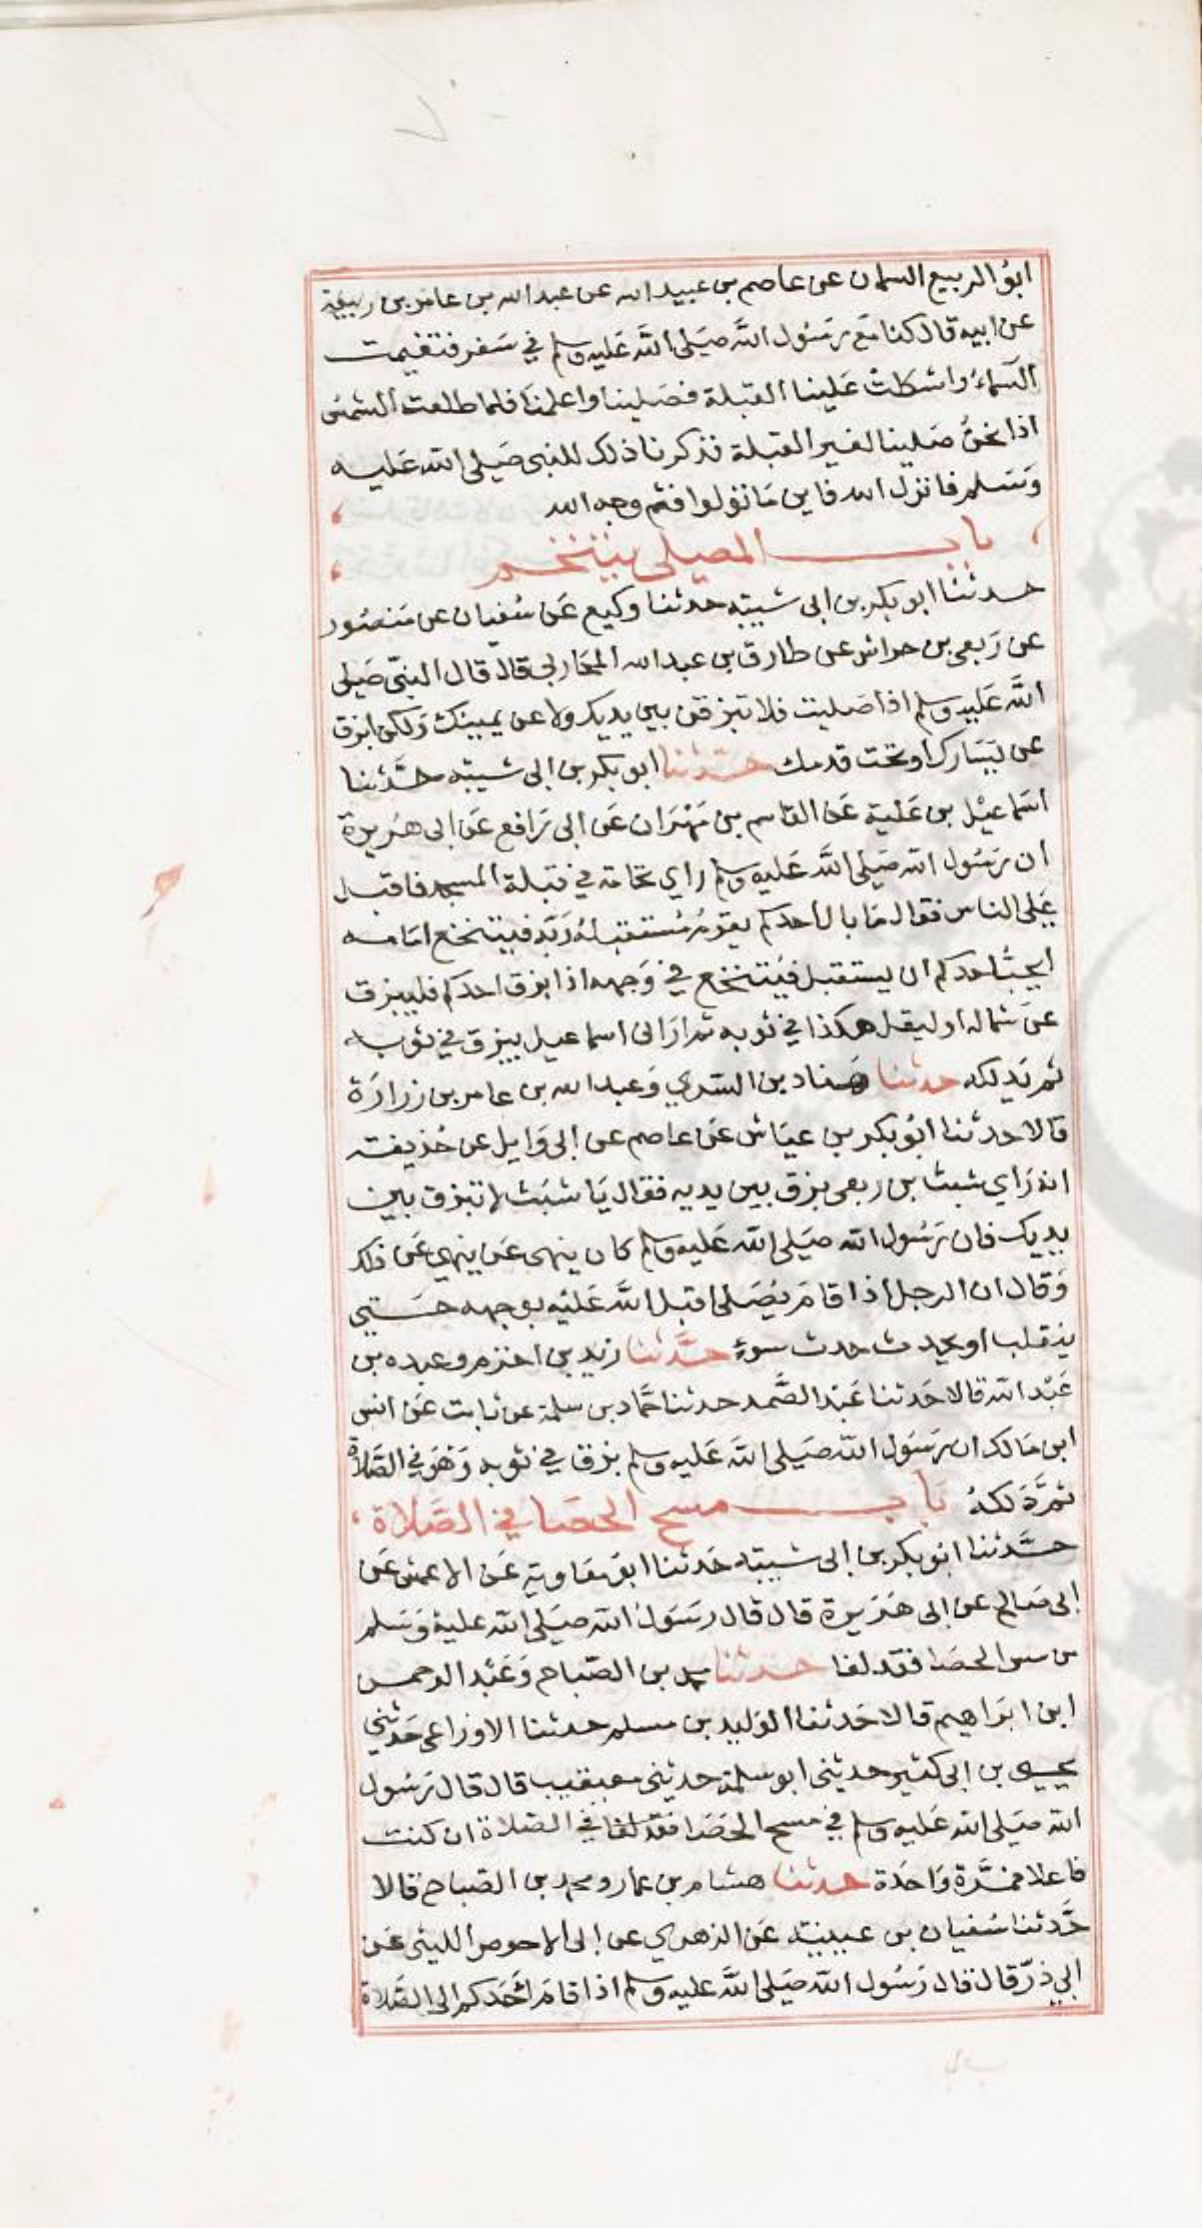 ابوُ الربيع السمان عن عاصم بن عبيد الله عن عبد الله بن عامر بن ربيعة
عن ابيه قال كنا مَع رسَوُل الله صَلى الله عَليه وسلم في سَفر فتغيمت
السّماءُ واشكلت عَلينا القبلة فصَلينا واعلمنَا فلما طلعت الشمسُ
اذا نحنُ صَلينا لغير القبلة فذكرنا ذلك للنبى صَلى الله عَليه
وَسَلم فانزل الله فاين مَا تولوا فثم وجه الله
باب المصلى يتنخم
حدثنا ابو بكر بن ابى شيبة حدثنا وكيع عَن سُفيان عن مَنصُور
عن رَبعى بن حراش عن طارق بن عبد الله المحَاربى قال قال النبيّ صَلى
الله عَليه وسلم اذا صَليت فلا تبزقن بين يديك ولا عن يمينك وَلكن ابزق
عن يسَارك او تحت قدمك حدثنا ابو بكر بن ابى شيبة حدَّثنا
اسَماعيْل بن عَلية عَن القاسم بن مَهْرَان عَن ابى رَافع عَن ابى هرَيرة
ان رسَوُل الله صَلى الله عَليه وسلم راي نخامة في قبلة المسجد فاقبل
عَلى الناس فقال مَا بال احدكم يقومُ مُستقبلهُ رَبّه فيتنخع امَامه
ايحبُّ احدكم ان يستقبل فيُتنخع في وَجهه اذا بزق احدكم فليبزق
عَن شماله او ليقل هكذا في ثوبه ثم ارَانى اسماعيل يبزق في ثوبه
ثم يَدلكه حدثنا هَناد بن السَّري وَعبد الله بن عامر بن زرارَة
قالا حدثنا ابوُ بكر بن عيَاش عَن عاصم عن ابى وَايل عن حُذيفة
انه رَاي شبث بن ربعى بزق بين يديه فقال يَا شبَث لا تبزق بين
يديك فان رسَوُل الله صَلى الله عَليه وسلم كان ينهى عَن ينهي عَن ذلك
وَقال ان الرجل اذا قامَ يُصَلى اقبل الله عَليْه بوجهه حَتي
ينقلب او يحدث حدث سوءٍ حدَّثنا زيد بن اخزم وعبده بن
عَبْد الله قالا حَدثنا عَبْد الصَّمد حدثنا حَمَّاد بن سلمة عن ثابت عَن انس
ابن مَالك ان رسَوُل الله صَلى الله عَليه وسلم بزق في ثوبه وَهوَ في الصَّلاة
ثمَّ دَلكهُ باب مسح الحصَا في الصَّلاة
حدَّثنا ابو بكر بن ابى شيبة حَدثنا ابوُ معَاوية عَن الاعمش عَن
ابى صَالح عن ابى هرَيرة قال قال رسَوَل الله صَلى الله عليْه وَسَلم
من مس الحصَا فقد لغا حدثنا محمد بن الصَّباح وَعَبْد الرحمن
ابن ابرَاهيم قالا حَدثنا الوَليد بن مسلم حدثنا الاوزاعى حَدثني
يحيى بن ابى كثير حدثنى ابو سلمة حدثنى معيقيب قال قال رَسُول
الله صَلى الله عَليه وسلم في مسح الحَصَا فقد لغا في الصَّلاة ان كنت
فاعلا فمَرَّة وَاحَدة حدثنا هشام بن عمار ومحمد بن الصَّباح قالا
حَدَّثنا سُفيان بن عيينة عَن الزهري عن ابى الاحوص الليثى عَن
ابي ذرّ قال قال رَسُول الله صَلى الله عليه وسلم اذا قامَ احَدَكم الى الصَّلاة